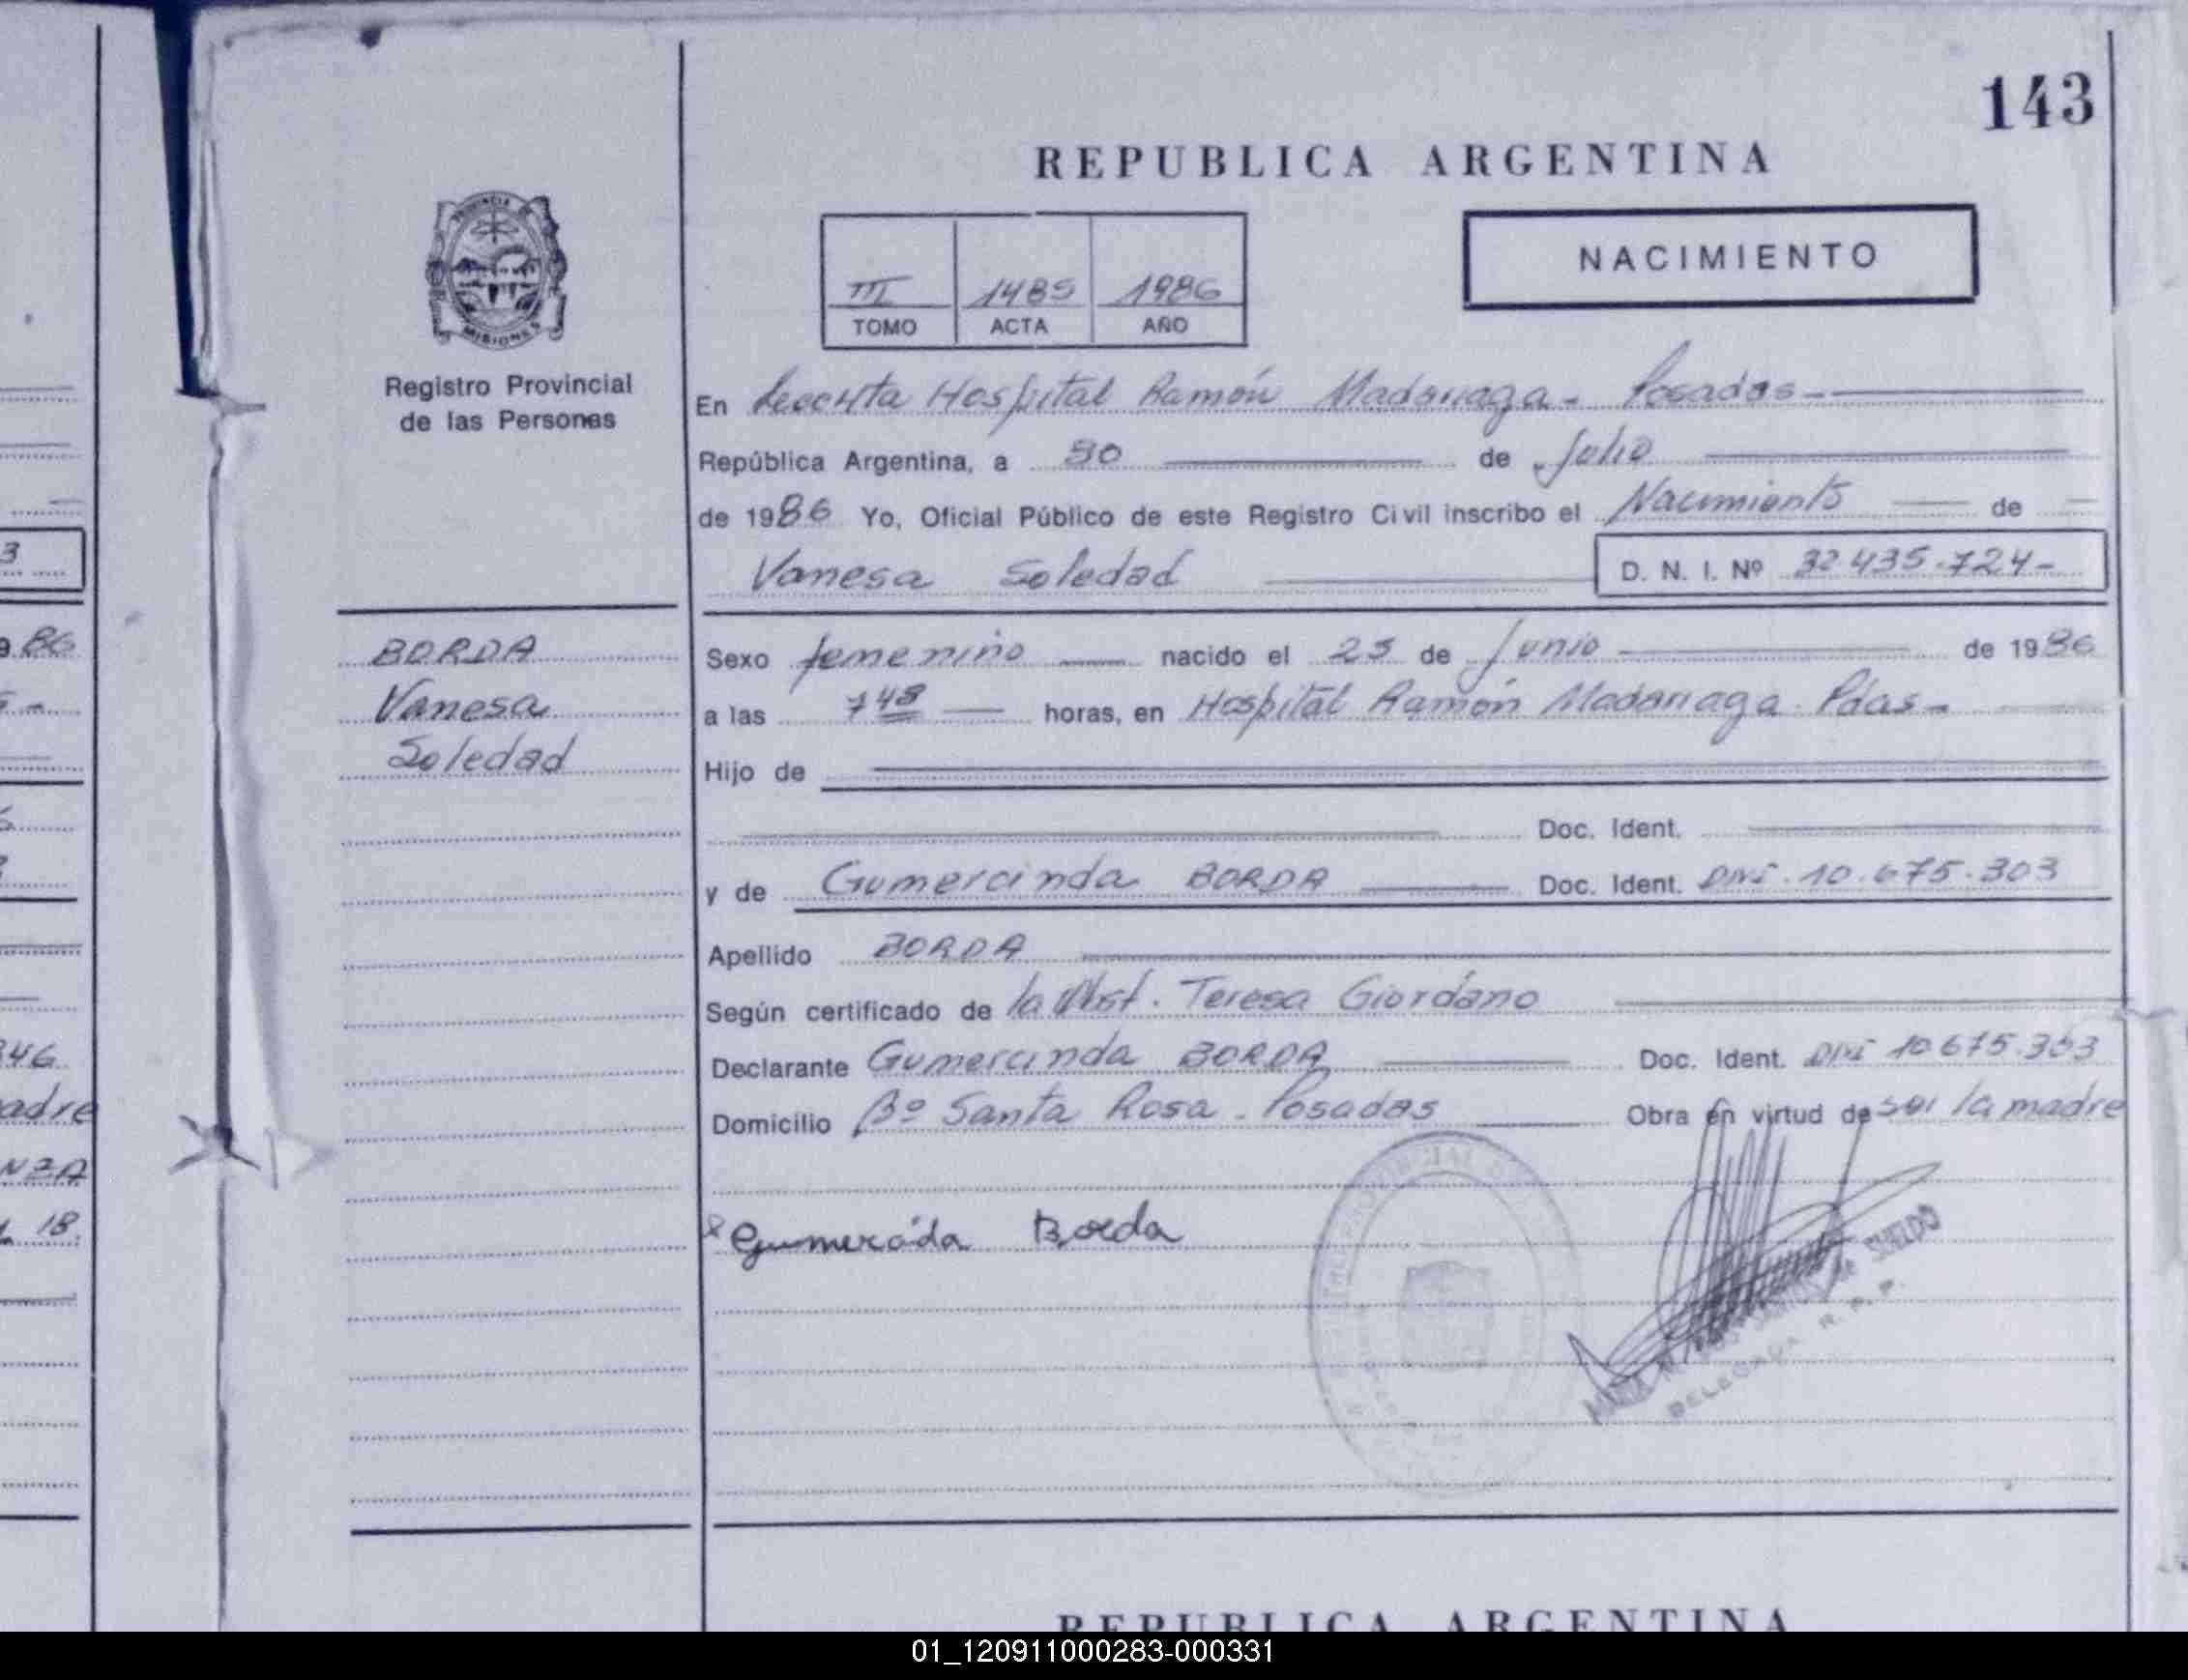 143
REPUBLICA ARGENTINA
NACIMIENTO
III 1485 1986
TOMO ACTA AÑO
PROVINCIA DE
MISIONES
Registro Provincial
de las Personas
En Hospital Ramón Madariaga - Posadas -
República Argentina, a 30 de Julio
de 1986 Yo, Oficial Público de este Registro Civil inscribo el Nacimiento de
Vanesa Soledad D. N. I. Nº 32.435.724-
BORDA
Vanesa
Soledad
Sexo femenino nacido el 25 de Junio de 1986
a las 7 48 horas, en Hospital Ramón Madariaga. Pdas-
Hijo de
Doc. Ident.
y de Gumercinda BORDA Doc. Ident. DNI. 10.675.303
Apellido BORDA
Según certificado de la Obst. Teresa Giordano
Declarante Gumercinda BORDA Doc. Ident. DNI 10.675.303
Domicilio Bº Santa Rosa - Posadas Obra en virtud de ser la madre
Gumercida Borda
de SUELDO
DELEGADA R. P. P.
3
986
346
adre
NZA
18.
REPUBLICA ARGENTINA
01_120911000283-000331